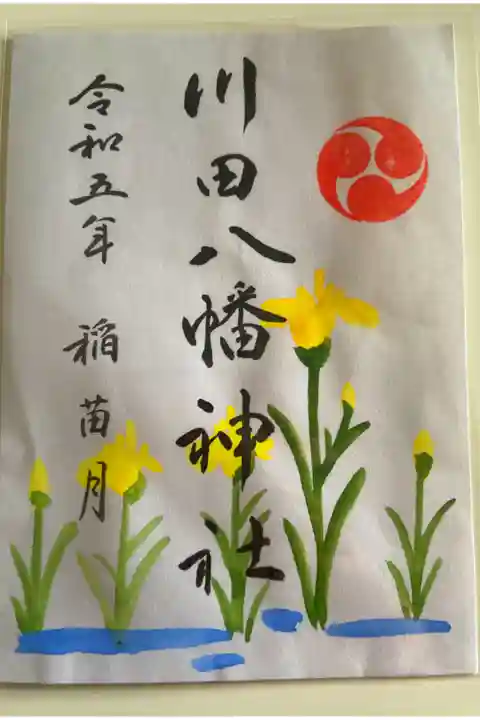 川田八幡神社
令和五年 稲苗月